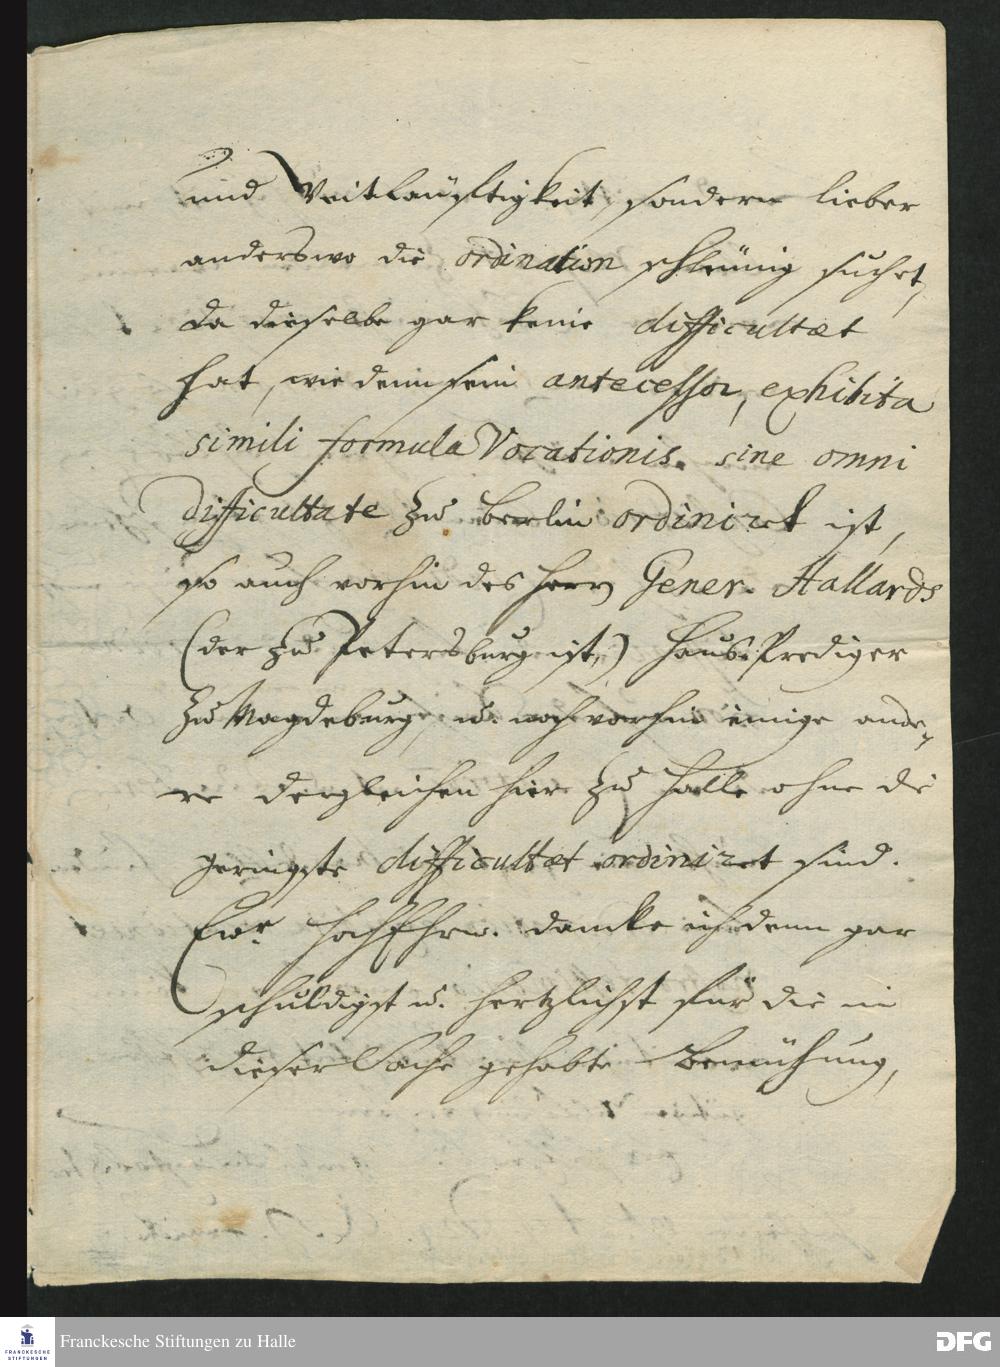 und Weitläufftigkeit, sondern lieber
anderswo die ordination schleünig suchet,
da dieselbe gar keine difficultæt
hat, wie denn sein antecessor, exhibita
simili formula Vocationis. sine omni
difficultate zu Berlin ordiniret ist,
so auch vorhin des Herrn Gener. Hallards
(der zu Petersburg ist,) Haus-Prediger
zu Magdeburg, u. noch vorhin einige ande-
re dergleichen hier zu Halle ohne die
geringste difficultæt ordiniret sind.
Ewr HochEhrw. dancke ich denn gar
schuldigst u. hertzlichst für die in
dieser Sache gehabte Bemühung,
FRANCKESCHE
STIFTUNGEN
Franckesche Stiftungen zu Halle
DFG